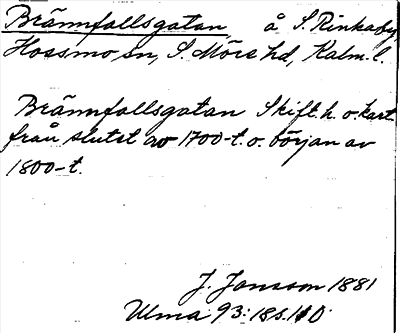 Brännfallsgatan å S. Rinkaby,
Hossmo sn, S. Möre hd, Kalm. l.
Brännfallsgatan Skift. h. o. kart.
från slutet av 1700-t. o. början av
1800-t.
J. Jansson 1881
Ulma 93:18 s. 110